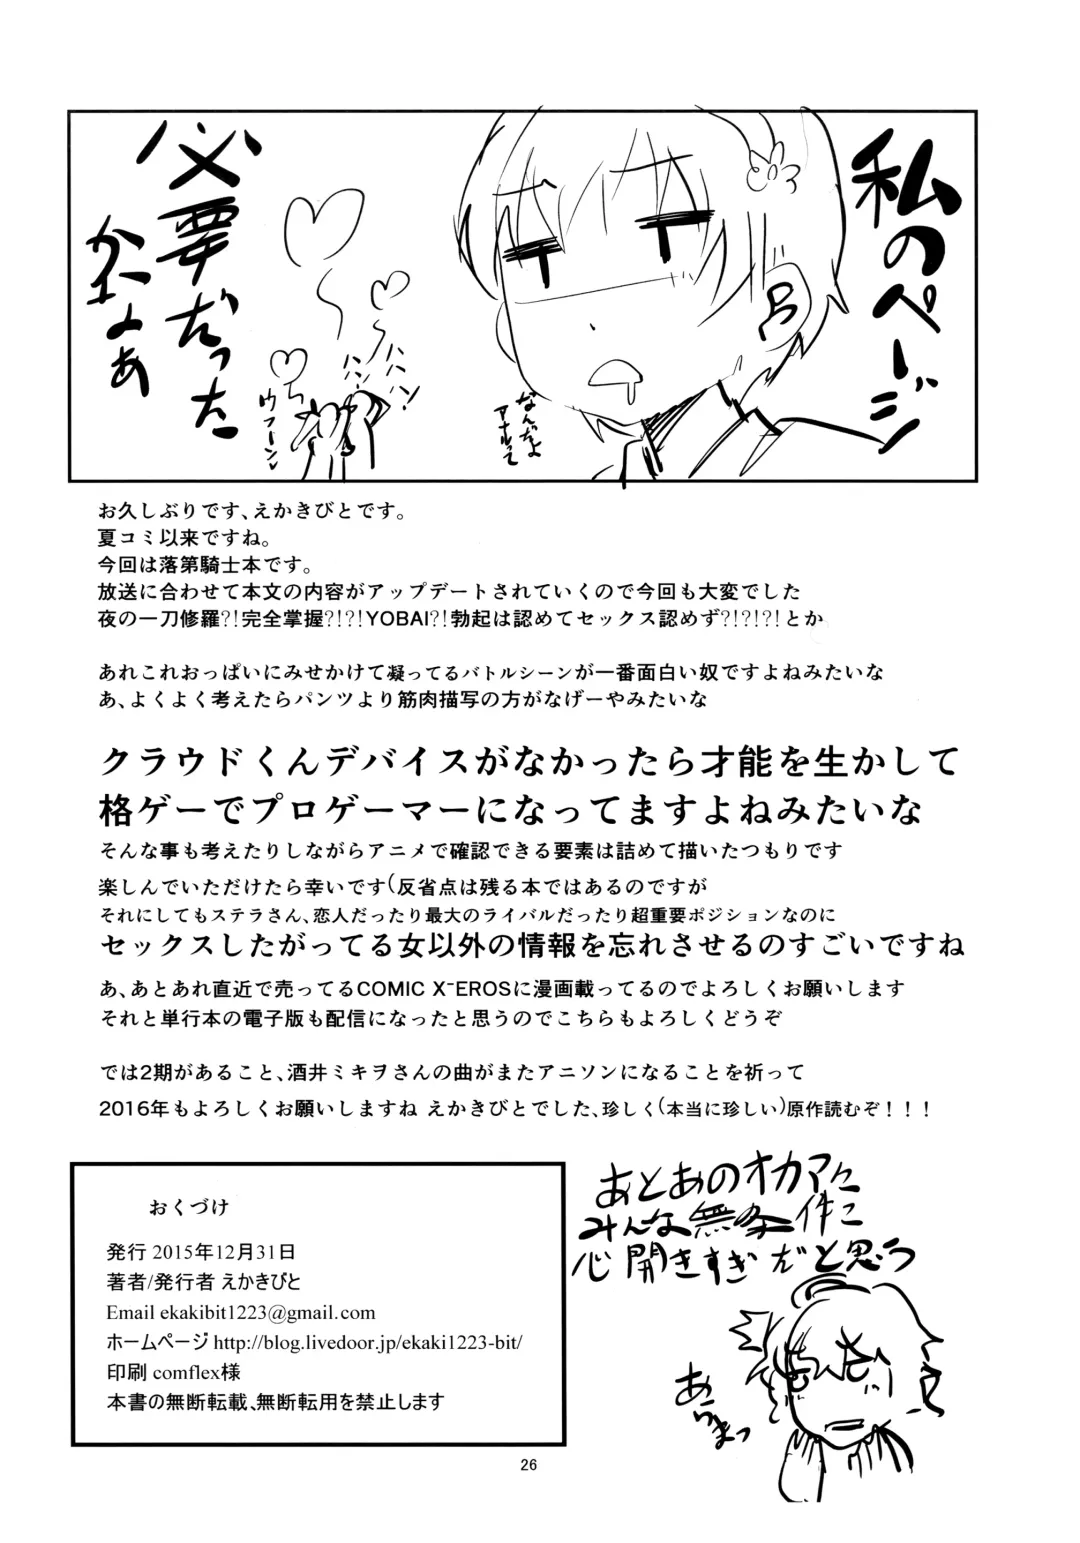 私のページ
必要だった
かよぉ
なんだよ
アナルって
ハンハンハン!
ウフーン♡
お久しぶりです、えかきびとです。
夏コミ以来ですね。
今回は落第騎士本です。
放送に合わせて本文の内容がアップデートされていくので今回も大変でした
夜の一刀修羅?!完全掌握?!?!YOBAI?!勃起は認めてセックス認めず?!?!?!とか
あれこれおっぱいにみせかけて凝ってるバトルシーンが一番面白い奴ですよねみたいな
あ、よくよく考えたらパンツより筋肉描写の方がなげーやみたいな
クラウドくんデバイスがなかったら才能を生かして
格ゲーでプロゲーマーになってますよねみたいな
そんな事も考えたりしながらアニメで確認できる要素は詰めて描いたつもりです
楽しんでいただけたら幸いです(反省点は残る本ではあるのですが
それにしてもステラさん、恋人だったり最大のライバルだったり超重要ポジションなのに
セックスしたがってる女以外の情報を忘れさせるのすごいですね
あ、あとあれ直近で売ってるCOMIC X-EROSに漫画載ってるのでよろしくお願いします
それと単行本の電子版も配信になったと思うのでこちらもよろしくどうぞ
では2期があること、酒井ミキヲさんの曲がまたアニソンになることを祈って
2016年もよろしくお願いしますね えかきびとでした、珍しく(本当に珍しい)原作読むぞ!!!
おくづけ
発行 2015年12月31日
著者/発行者 えかきびと
Email ekakibit1223@gmail.com
ホームページ http://blog.livedoor.jp/ekaki1223-bit/
印刷 comflex様
本書の無断転載、無断転用を禁止します
あとあのオカマに
みんな無条件に
心開きすぎだと思う
あらまっ
26